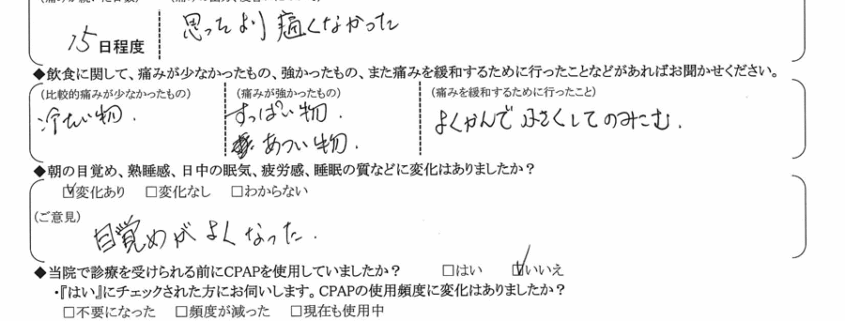 15日程度
思ったより痛くなかった
◆飲食に関して、痛みが少なかったもの、強かったもの、また痛みを緩和するために行ったことなどがあればお聞かせください。
(比較的痛みが少なかったもの) (痛みが強かったもの) (痛みを緩和するために行ったこと)
冷たい物.
すっぱい物.
あつい物.
よくかんで小さくしてのみこむ.
◆朝の目覚め、熟睡感、日中の眠気、疲労感、睡眠の質などに変化はありましたか?
☑変化あり □変化なし □わからない
(ご意見)
目覚めがよくなった.
◆当院で診療を受けられる前にCPAPを使用していましたか? □はい ☑いいえ
・『はい』にチェックされた方にお伺いします。CPAPの使用頻度に変化はありましたか?
□不要になった □頻度が減った □現在も使用中